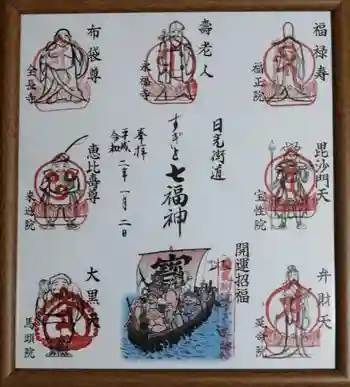 福禄寿
福正院
毘沙門天
宝性院
弁財天
延命院
壽老人
永福寺
日光街道
すぎと七福神
奉拝
平成
令和 二年一月二日
開運招福
寳
布袋尊
全長寺
恵比寿尊
来迎院
大黒天
馬頭院